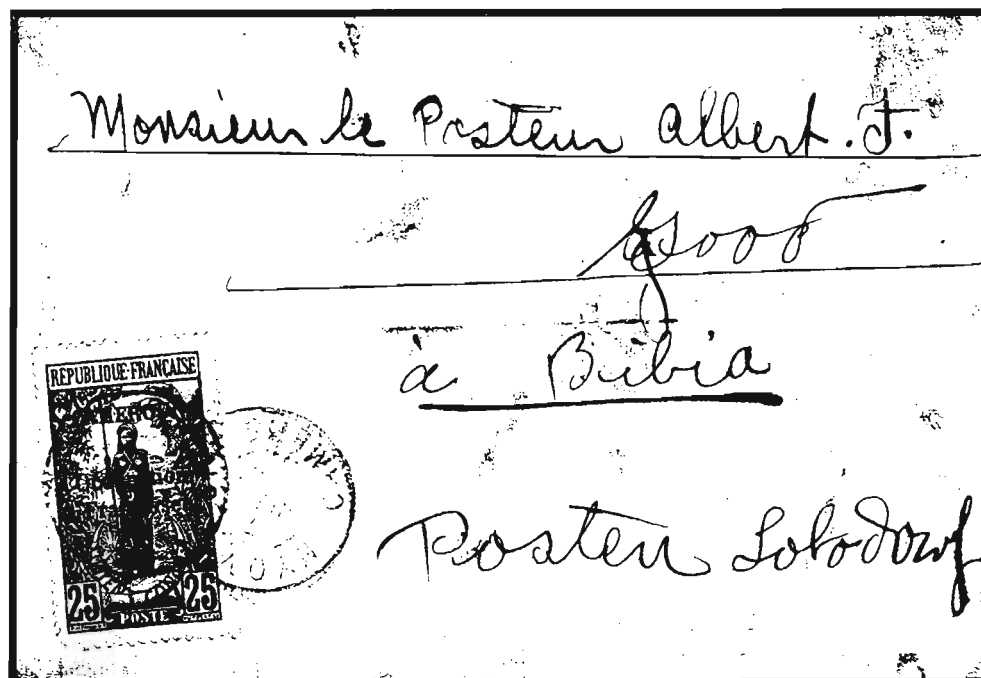 Monsieur le Pasteur Albert. F.
à Bibia
Posten Lolodorf
RÉPUBLIQUE FRANÇAISE
25 POSTE 25